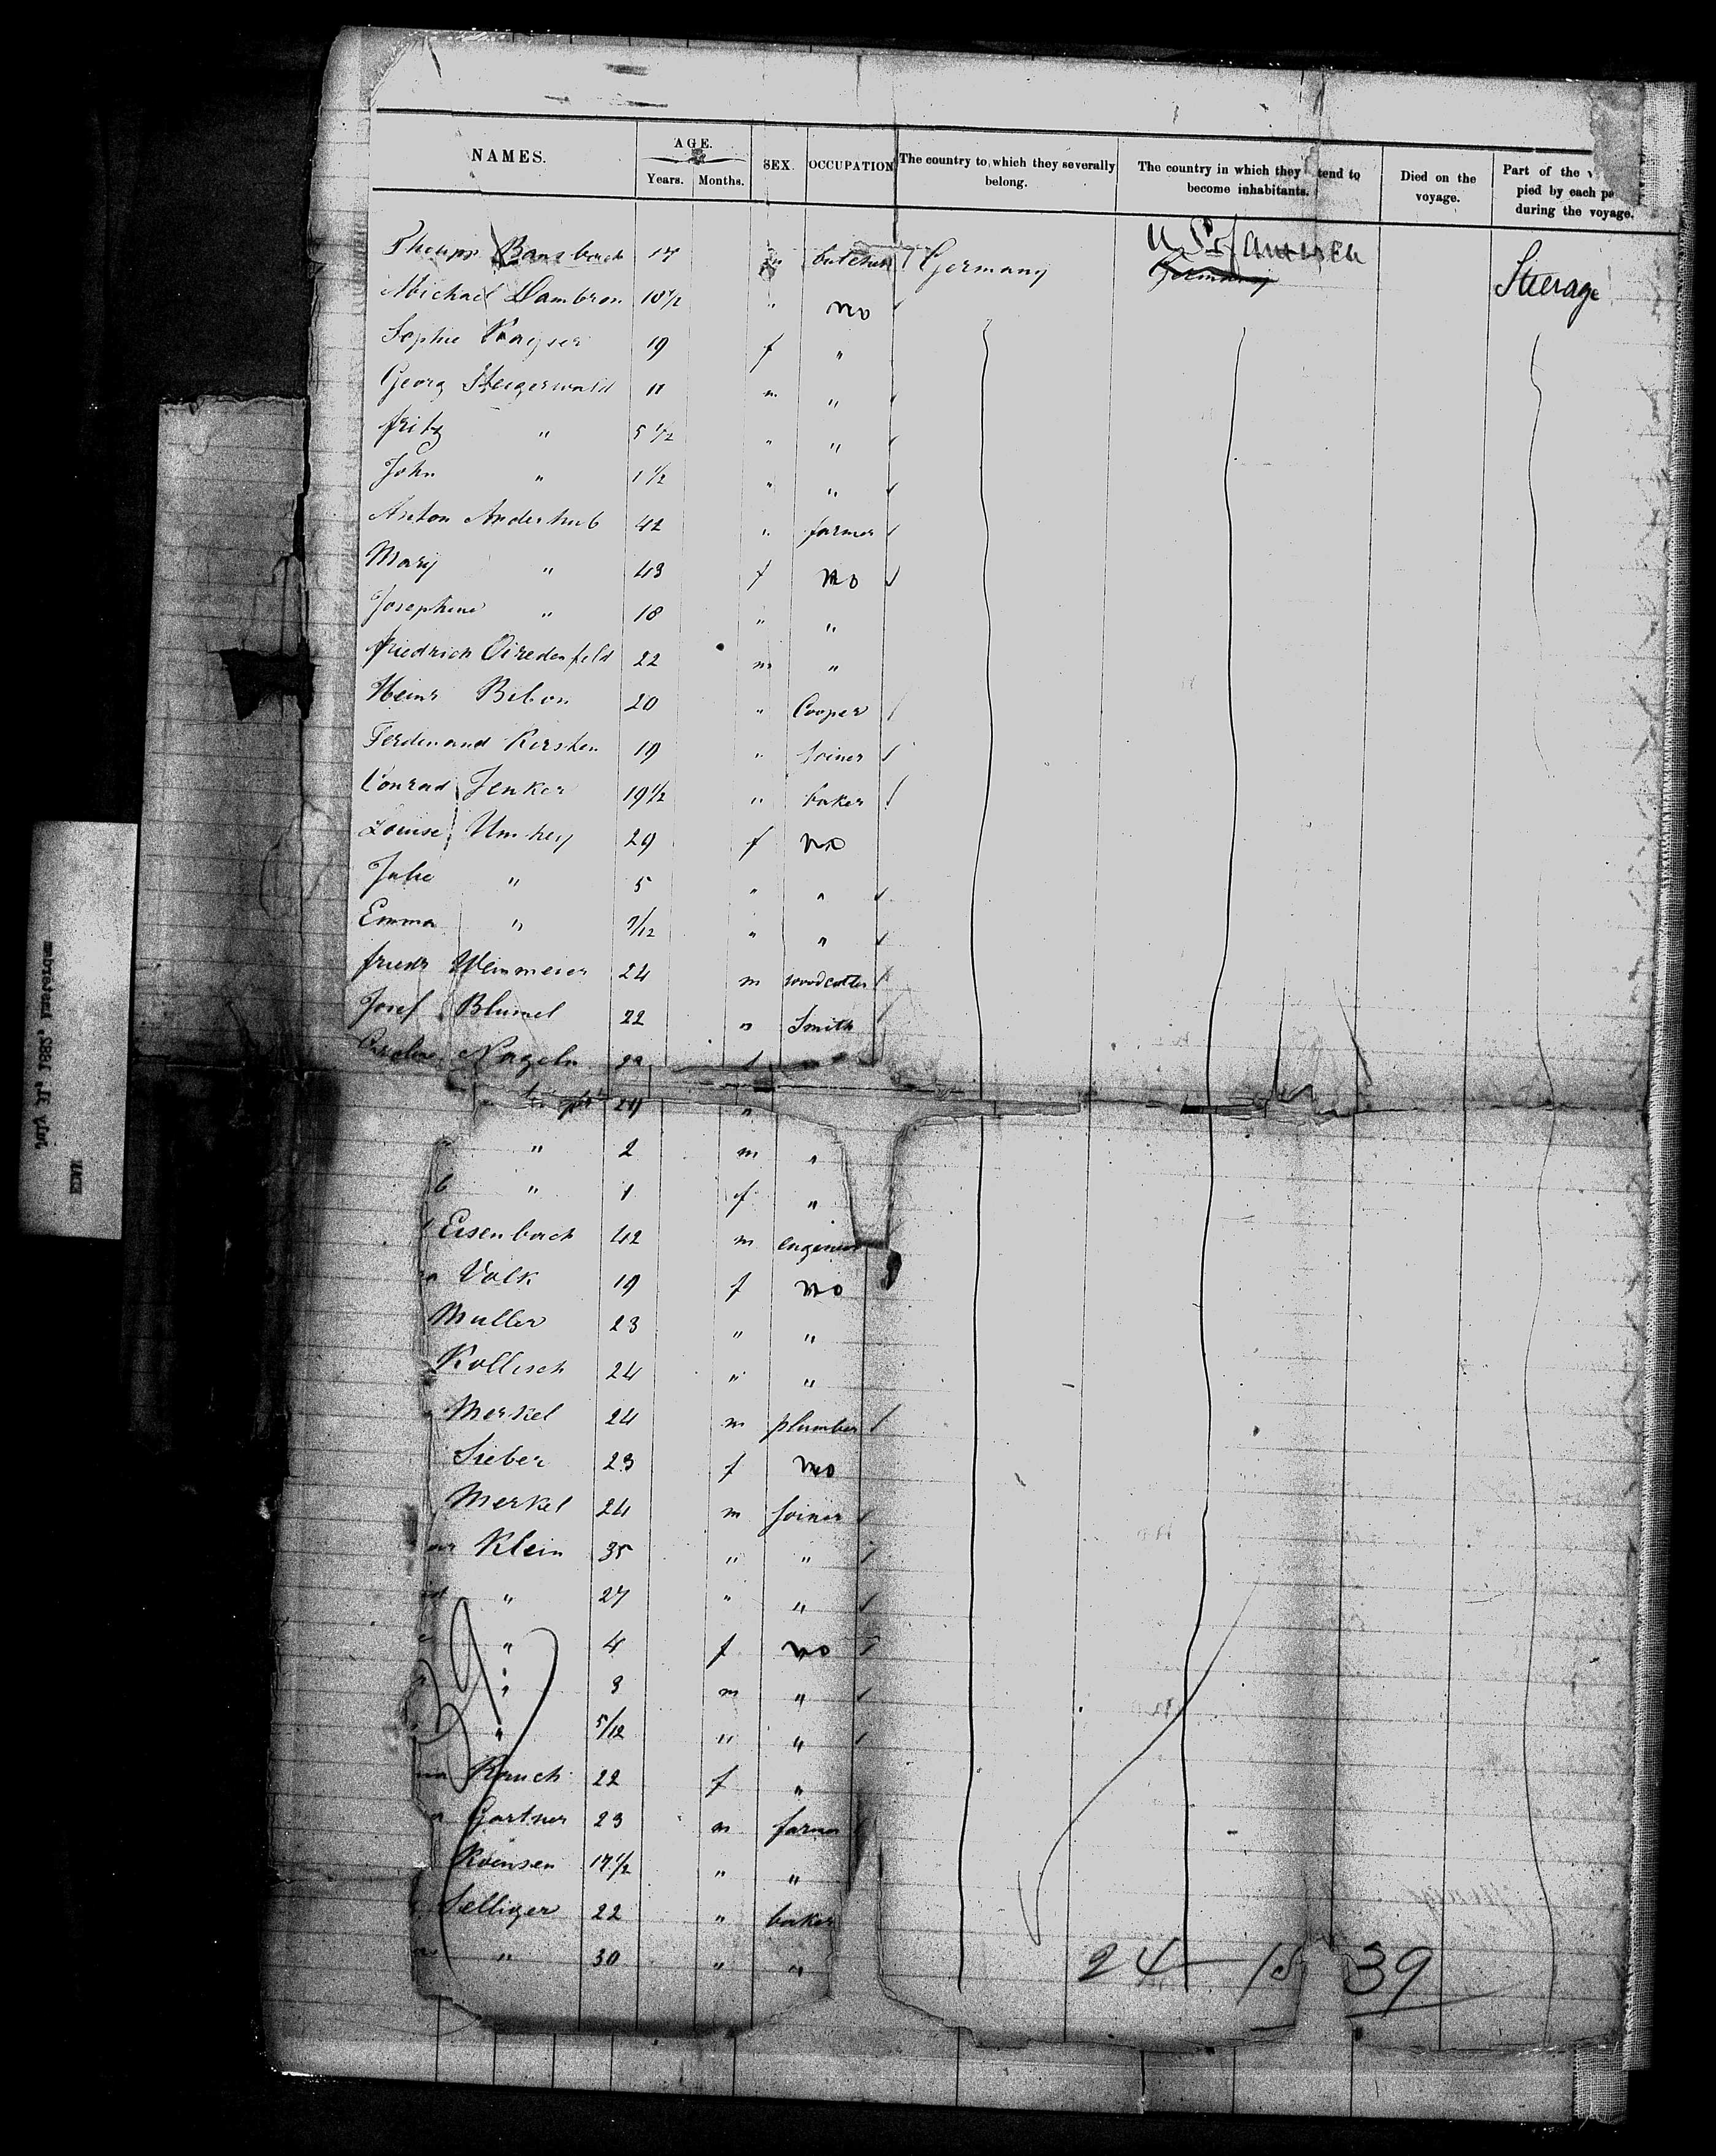 NAMES. AGE. SEX. OCCUPATION The country to which they severally belong. The country in which they tend to become inhabitants. Died on the voyage. Part of the v pied by each pa during the voyage.
Years. Months.
Bansbach 17 m butcher Germany U.S. of America Germany Steerage
Michael Dambron 10 1/2 " no
Sophie 19 f "
Georg Steigerwald 11 m "
Fritz " 5 1/2 " "
John " 1 1/2 " "
Anton Anderhub 42 " farmer
Mary " 43 f no
Josephine " 18 " "
Friedrich 22 m "
Heinr Bibon 20 " Cooper
Ferdinand Kersten 19 " Joiner
Conrad Jenker 19 1/2 " baker
Louise Umhey 29 f no
Julie " 5 " "
Emma " 7/12 " "
Friedr Weinmeier 24 m woodcutter
Josef Blumel 22 " Smith
Caroline Nageln
"
" 2 m "
" 1 f "
Eisenbach 42 m engineer
Volk 19 f no
Muller 23 " "
Kollisch 24 " "
Merkel 24 m plumber
Sieber 23 f no
Merkel 24 m Joiner
Klein 35 " "
" 27 " "
" 4 f no
" 3 m "
" 5/12 " "
Rauch 22 f "
Gartner 23 m farmer
17 1/2 " "
Selliger 22 " baker
" 30 " "
39
24 — 15 39